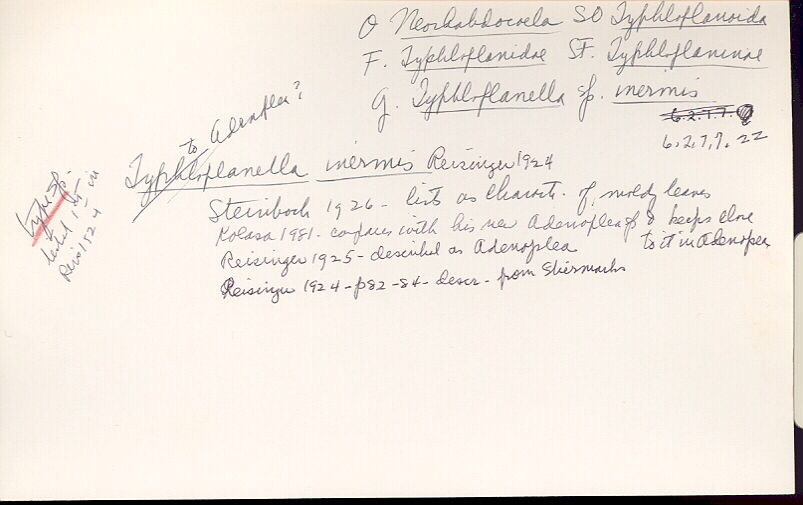 O Neorhabdocoela SO Typhloplanoida
F. Typhloplanidae SF. Typhloplaninae
G. Typhloplanella sp. inermis
6.2.7.7.
6.2.7.7.22
to Adenoplea?
Typhloplanella inermis Reisinger 1924
type sp.
listed 1st in
Reis 1924
Steinbock 1926 - lists as charact. of moldy leaves
Kolasa 1981 - compares with his new Adenoplea sp & keeps close
to it in Adenoplea
Reisinger 1925 - described as Adenoplea
Reisinger 1924 - p82-84 - descr - from Stiermarks